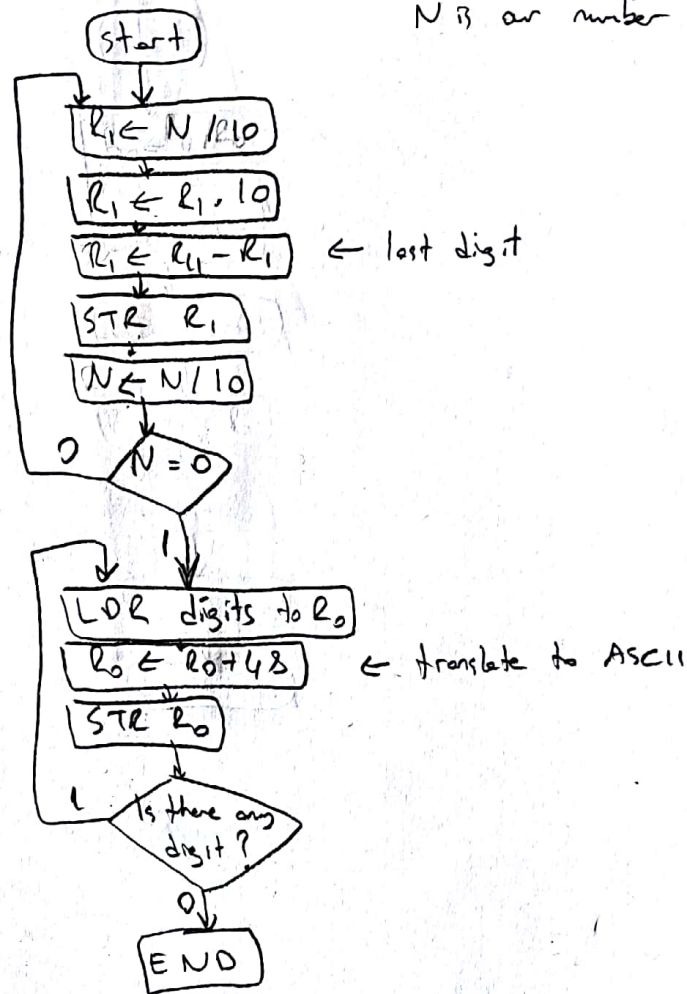 N is our number
start
R₁ ← N / 10
R₁ ← R₁ . 10
R₁ ← R₁₁ - R₁ ← last digit
STR R₁
N ← N / 10
0 N = 0
1
LDR digits to R₀
R₀ ← R₀+48 ← translate to ASCII
STR R₀
1 Is there any
digit ?
0
END